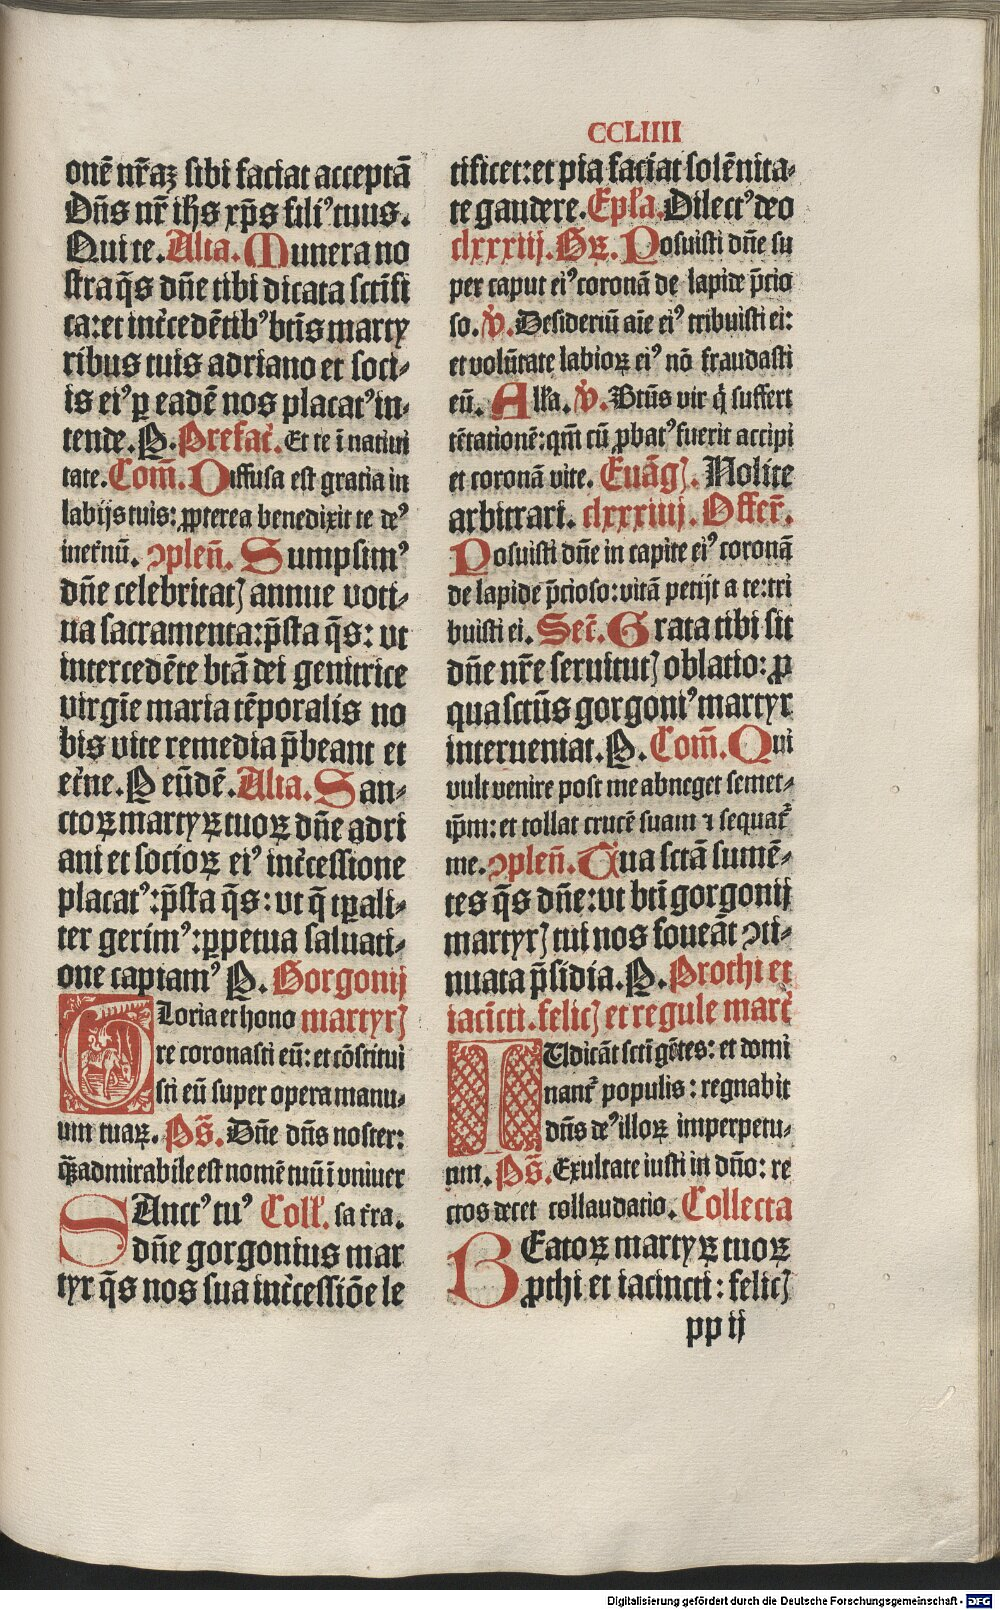 CCLIIII
onē nr̄aꝫ sibi faciat acceptā
Dn̄s nr̄ ih̄s xp̄s filiꝰ tuus.
Qui te. Alia. Munera no
stra q̄s dn̄e tibi dicata sc̄tifi
ca: et int̄cedētibꝰ btīs marty
ribus tuis adriano et soci-
is eiꝰ ꝑ eadē nos placatꝰ in-
tende. P. Prefac̄. Et te ī natiui
tate. Com̄. Diffusa est gratia in
labijs tuis: ꝓpterea benedixit te deꝰ
in et̄nū. ꝯplen̄. Sumpsimꝰ
dn̄e celebritatꝭ annue voti-
ua sacramenta: p̄sta q̄s: vt
intercedēte btā dei genitrice
virgīe maria tēporalis no
bis vite remedia p̄beant et
et̄ne. P eūdē. Alia. San-
ctoꝝ martyꝝ tuoꝝ dn̄e adri
ani et socioꝝ eiꝰ int̄cessione
placatꝰ: p̄sta q̄s: vt q̄ tꝑali-
ter gerimꝰ: ꝑpetua saluati-
one capiamꝰ P. Gorgonij
Gloria et hono martyrꝭ
re coronasti eū: et cōstitui
sti eū super opera manu-
um tuaꝝ. Ps̄. Dn̄e dn̄s noster:
ꝙ̄ admirabile est nomē tuū ī vniuer
SAnctꝰ tuꝰ Coll̄. sa t̄ra.
dn̄e gorgonius mar
tyr q̄s nos sua int̄cessiōe le
tificet: et pia faciat solēnita-
te gaudere. Epl̄a. Dilectꝰ deo
clxxxiij. Gꝝ. Posuisti dn̄e su
per caput eiꝰ coronā de lapide p̄cio
so. v̄. Desideriū aīe eiꝰ tribuisti ei:
et volūtate labioꝝ eiꝰ nō fraudasti
eū. All̄a. v̄. Btūs vir q̄ suffert
tētationē: qm̄ cū ꝓbatꝰ fuerit accipi
et coronā vite. Euāgꝭ. Nolite
arbitrari. clxxxiiij. Offer̄.
Posuisti dn̄e in capite eiꝰ coronā
de lapide p̄cioso: vitā petijt a te: tri
buisti ei. Sec̄. Grata tibi sit
dn̄e nr̄e seruitutꝭ oblatio: ꝓ
qua sctūs gorgoniꝰ martyr
interueniat. P. Com̄. Qui
vult venire post me abneget semet-
ip̄m: et tollat crucē suam ⁊ sequat᷑
me. ꝯplen̄. Tua sctā sumē-
tes q̄s dn̄e: vt btī gorgonij
martyrꝭ tui nos foueāt ꝯti-
nuata p̄sidia. P. Prothi et
iacīcti. felicꝭ et regule mart̄
IUdicāt sctī gētes: et domi
nant᷑ populis: regnabit
dn̄s deꝰ illoꝝ imperpetu-
um. Ps̄. Exultate iusti in dn̄o: re
ctos decet collaudatio. Collecta
BEatoꝝ martyꝝ tuoꝝ
ꝓthi et iacincti: felicꝭ
pp ij
Digitalisierung gefördert durch die Deutsche Forschungsgemeinschaft - DFG